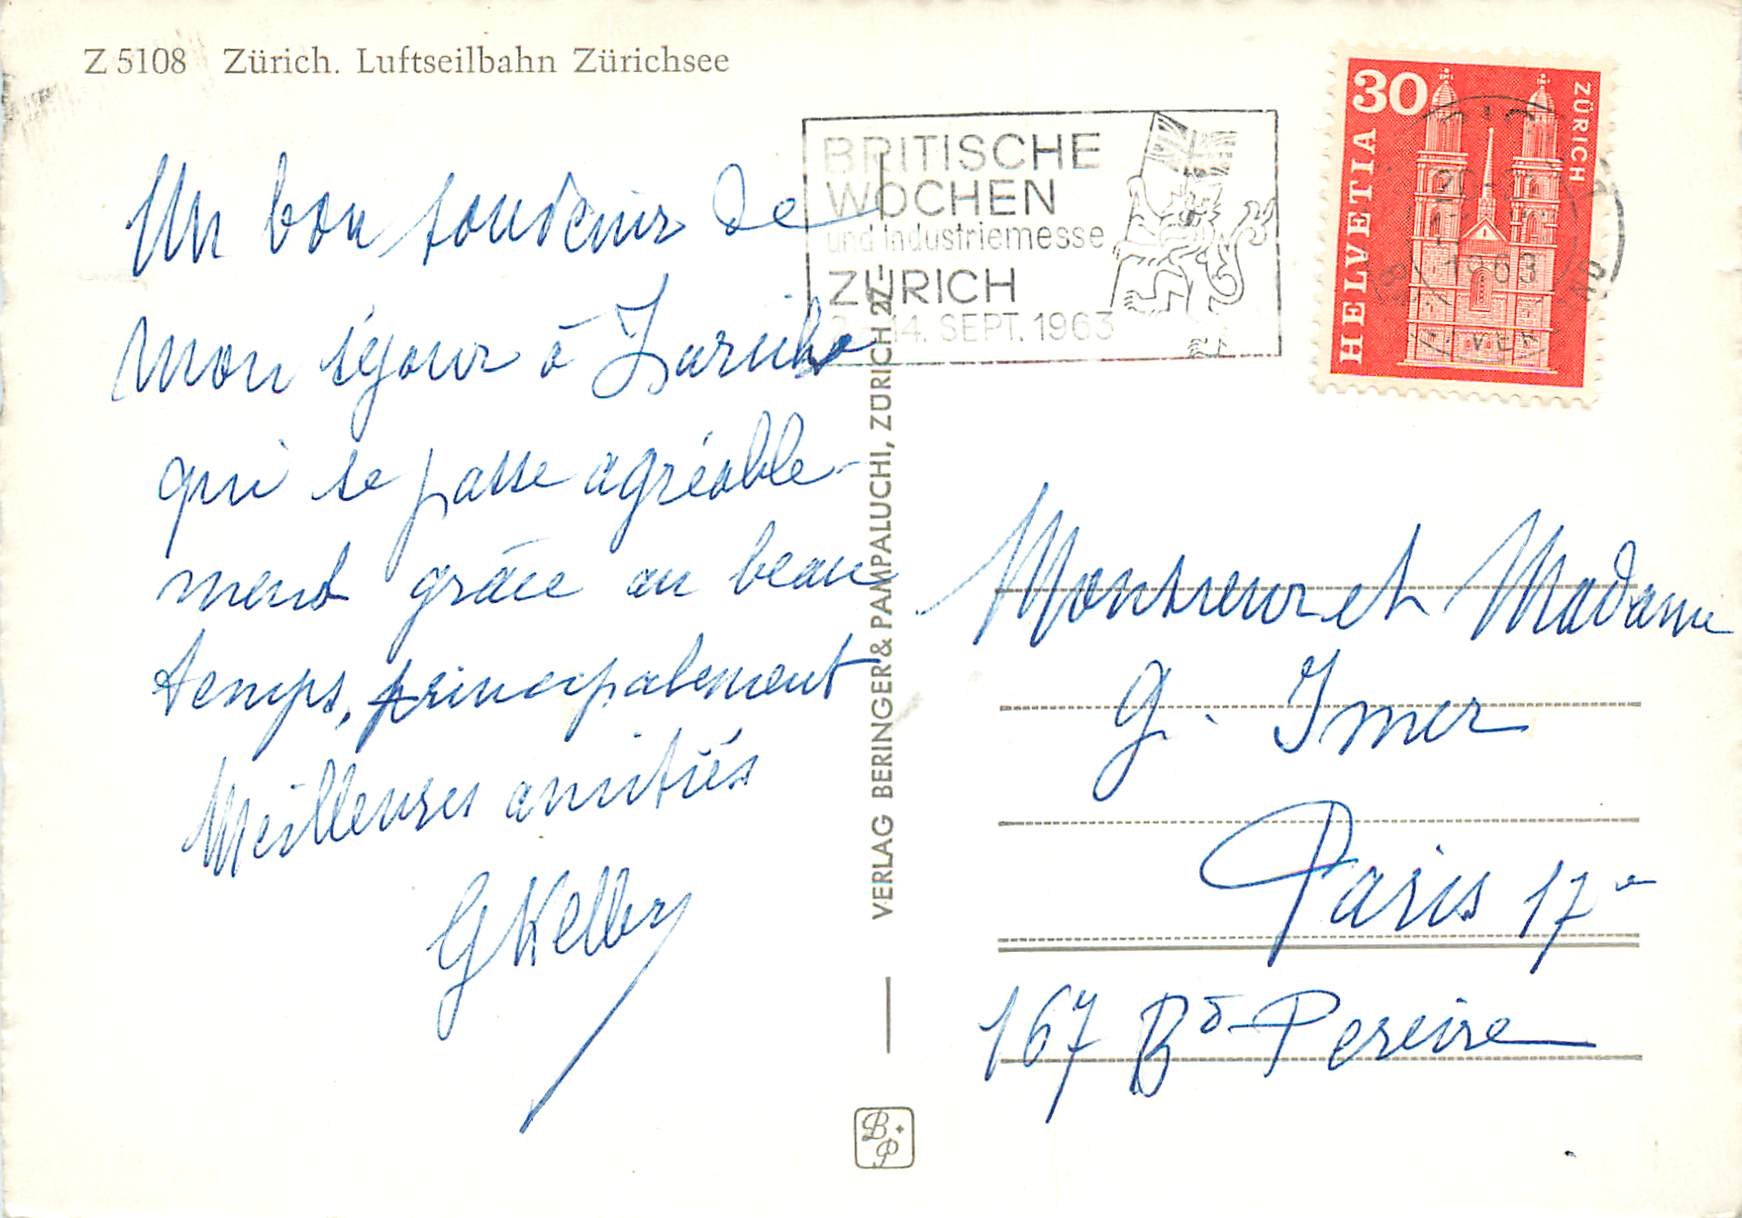 Z 5108 Zürich. Luftseilbahn Zürichsee
Un bon souvenir de
mon séjour à Zurich
qui se passe agréable-
ment grâce au beau
temps, principalement
Meilleures amitiés
G Kelly
VERLAG BERINGER & PAMPALUCHI, ZÜRICH 27
BRITISCHE
WOCHEN
und Industriemesse
ZÜRICH
14. SEPT. 1963
30
HELVETIA
ZÜRICH
1963
Monsieur et Madame
G. Imer
Paris 17e
167 Bd Pereire
B+P